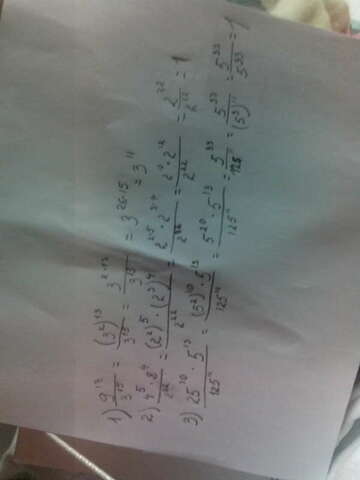 1) 9^13/3^15 = (3^2)^13/3^15 = 3^(2·13)/3^15 = 3^(26-15) = 3^11
2) 4^5·8^4/2^22 = (2^2)^5·(2^3)^4/2^22 = 2^(2·5)·2^(3·4)/2^22 = 2^10·2^12/2^22 = 2^22/2^22 = 1
3) 25^10·5^13/125^11 = (5^2)^10·5^13/125^11 = 5^20·5^13/125^11 = 5^33/125^11 = 5^33/(5^3)^11 = 5^33/5^33 = 1